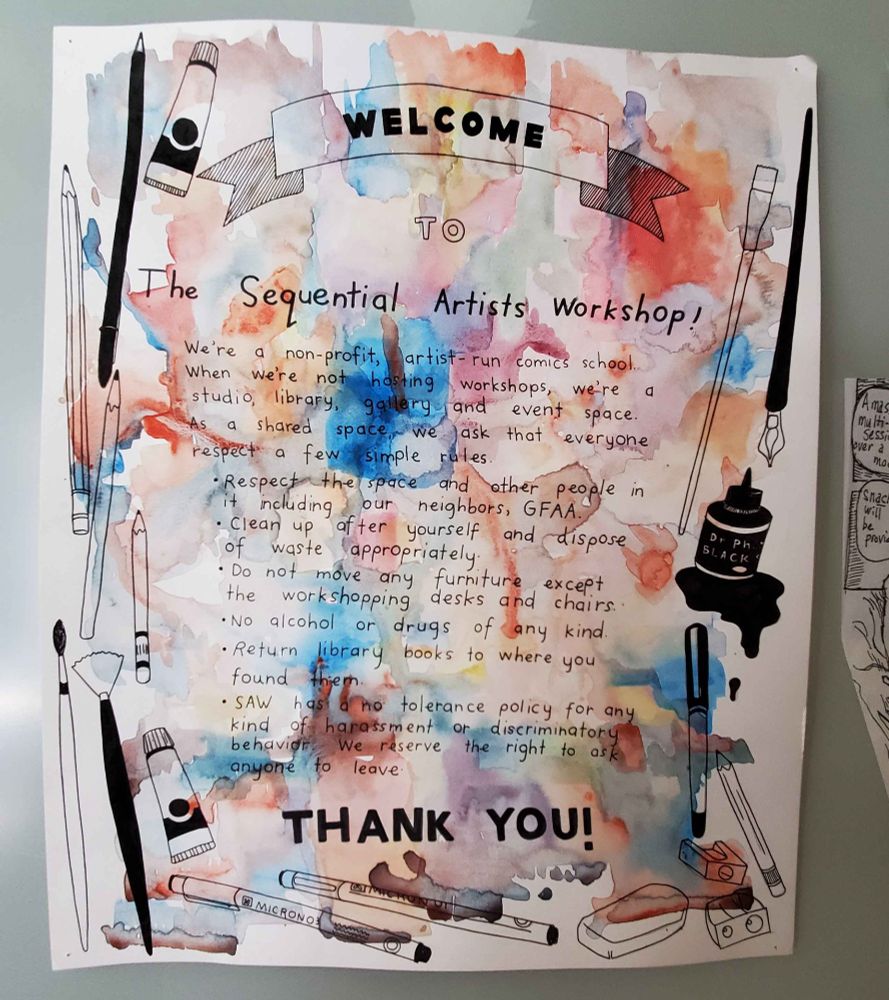 WELCOME
TO
The Sequential Artists Workshop!
We're a non-profit, artist-run comics school.
When we're not hosting workshops, we're a
studio, library, gallery and event space.
As a shared space, we ask that everyone
respect a few simple rules.
• Respect the space and other people in
it including our neighbors, GFAA.
• Clean up after yourself and dispose
of waste appropriately.
• Do not move any furniture except
the workshopping desks and chairs.
• No alcohol or drugs of any kind.
• Return library books to where you
found them.
• SAW has a no tolerance policy for any
kind of harassment or discriminatory
behavior. We reserve the right to ask
anyone to leave.
THANK YOU!
Dr Ph.
BLACK
MICRON
MICRON
multi-
over a
Snac
will
be
provi